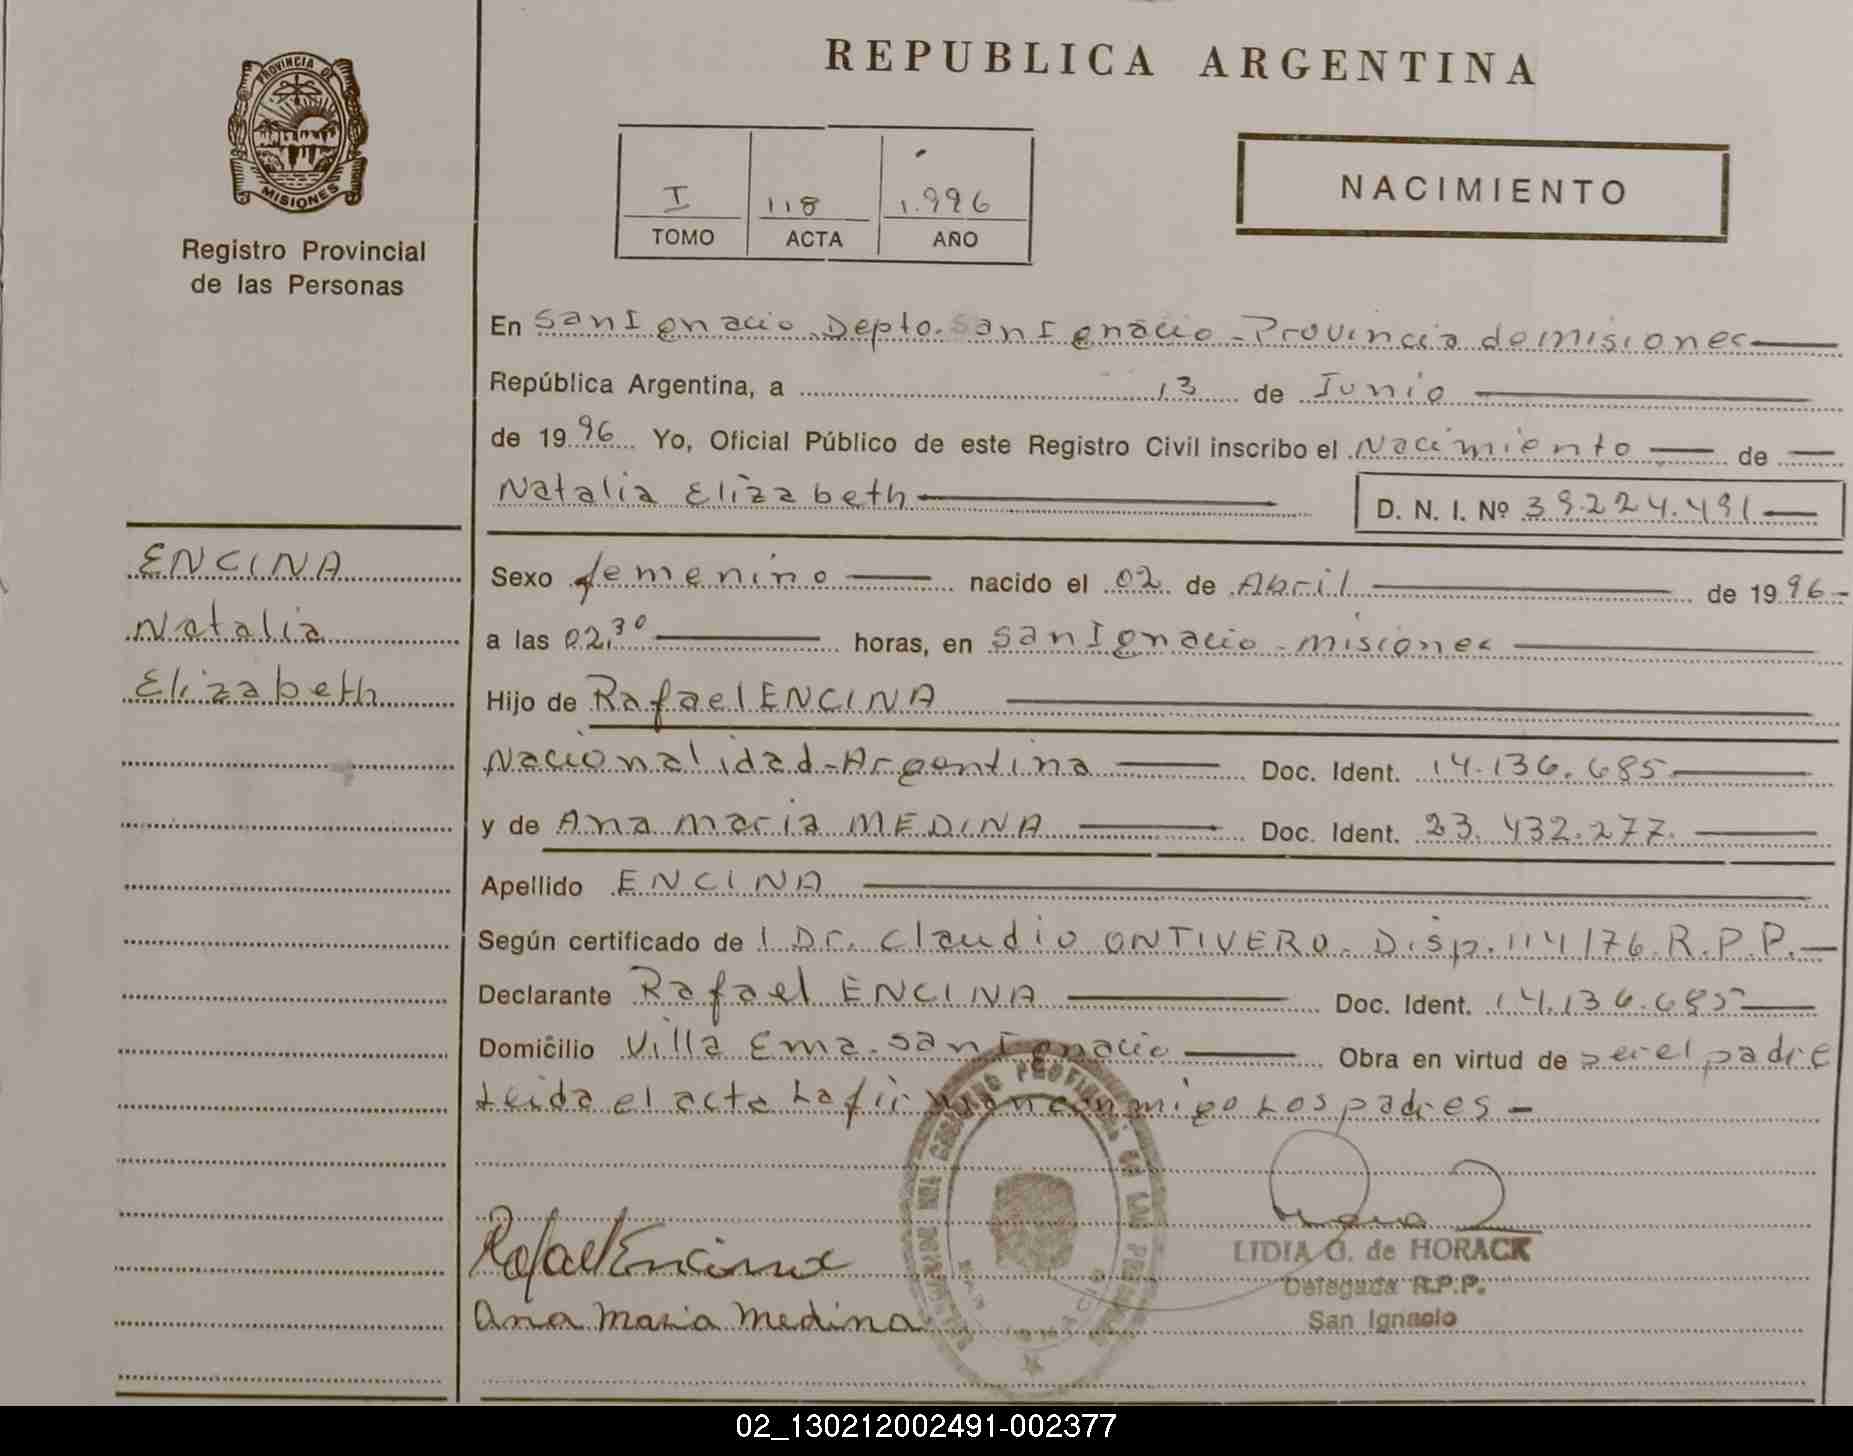 PROVINCIA DE
MISIONES
Registro Provincial
de las Personas
REPUBLICA ARGENTINA
I 118 1.996
TOMO ACTA AÑO
NACIMIENTO
En San Ignacio. Depto. San Ignacio - Provincia de misiones
República Argentina, a 13 de Junio
de 1996 Yo, Oficial Público de este Registro Civil inscribo el Nacimiento de
Natalia Elizabeth
D. N. I. Nº 39.224.491
ENCINA
Natalia
Elizabeth
Sexo femenino nacido el 02 de Abril de 1996-
a las 02,30 horas, en San Ignacio - misiones
Hijo de Rafael ENCINA
Nacionalidad - Argentina Doc. Ident. 14.136.685
y de Ana maria MEDINA Doc. Ident. 23.432.277.
Apellido ENCINA
Según certificado de l Dr. Claudio ONTIVERO. Disp. 114/76. R.P.P.-
Declarante Rafael ENCINA Doc. Ident. 14.136.685
Domicilio Villa Ema. San Ignacio Obra en virtud de ser el padre
Leida el acta La firman conmigo Los padres -
Rafael Encina
Ana Maria Medina
LIDIA G. de HORACK
Delegada R.P.P.
San Ignacio
02_130212002491-002377